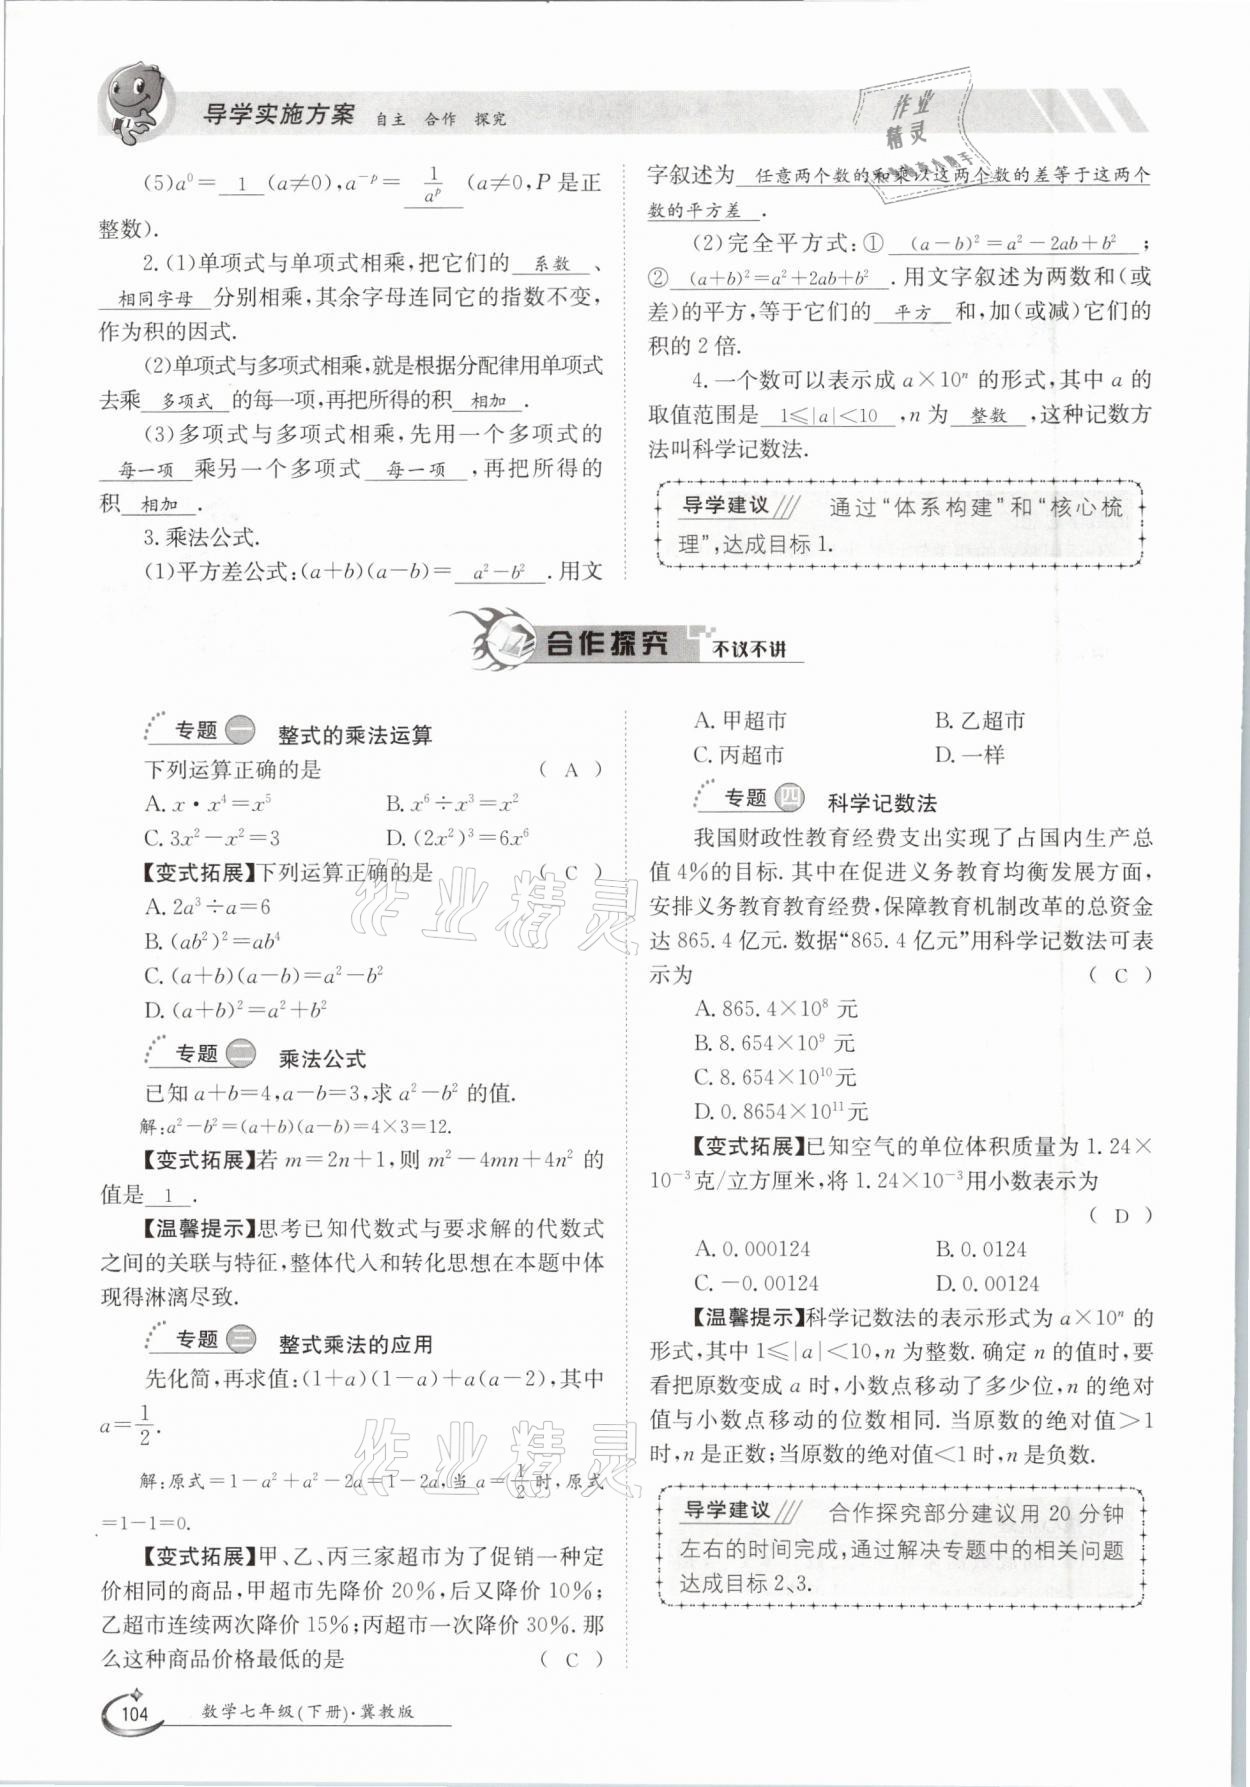 导学实施方案 自主 合作 探究
作业
精灵
(5)a⁰=1(a≠0),a⁻ᵖ=1/aᵖ(a≠0,P是正
整数).
2.(1)单项式与单项式相乘,把它们的 系数 、
相同字母 分别相乘,其余字母连同它的指数不变,
作为积的因式.
(2)单项式与多项式相乘,就是根据分配律用单项式
去乘 多项式 的每一项,再把所得的积 相加 .
(3)多项式与多项式相乘,先用一个多项式的
每一项 乘另一个多项式 每一项 ,再把所得的
积 相加 .
3.乘法公式.
(1)平方差公式:(a+b)(a-b)= a²-b² .用文
字叙述为 任意两个数的和乘以这两个数的差等于这两个
数的平方差 .
(2)完全平方式:① (a-b)²=a²-2ab+b² ;
② (a+b)²=a²+2ab+b² .用文字叙述为两数和(或
差)的平方,等于它们的 平方 和,加(或减)它们的
积的2倍.
4.一个数可以表示成a×10ⁿ的形式,其中a的
取值范围是 1≤|a|<10 ,n为 整数 ,这种记数方
法叫科学记数法.
导学建议 通过“体系构建”和“核心梳
理”,达成目标1.
合作探究 不议不讲
专题一 整式的乘法运算
下列运算正确的是 ( A )
A.x·x⁴=x⁵ B.x⁶÷x³=x²
C.3x²-x²=3 D.(2x²)³=6x⁶
【变式拓展】下列运算正确的是 ( C )
A.2a³÷a=6
B.(ab²)²=ab⁴
C.(a+b)(a-b)=a²-b²
D.(a+b)²=a²+b²
专题二 乘法公式
已知a+b=4,a-b=3,求a²-b²的值.
解:a²-b²=(a+b)(a-b)=4×3=12.
【变式拓展】若m=2n+1,则m²-4mn+4n²的
值是 1 .
【温馨提示】思考已知代数式与要求解的代数式
之间的关联与特征,整体代入和转化思想在本题中体
现得淋漓尽致.
专题三 整式乘法的应用
先化简,再求值:(1+a)(1-a)+a(a-2),其中
a=1/2.
解:原式=1-a²+a²-2a=1-2a,当a=1/2时,原式
=1-1=0.
【变式拓展】甲、乙、丙三家超市为了促销一种定
价相同的商品,甲超市先降价20%,后又降价10%;
乙超市连续两次降价15%;丙超市一次降价30%.那
么这种商品价格最低的是 ( C )
A.甲超市 B.乙超市
C.丙超市 D.一样
专题四 科学记数法
我国财政性教育经费支出实现了占国内生产总
值4%的目标.其中在促进义务教育均衡发展方面,
安排义务教育教育经费,保障教育机制改革的总资金
达865.4亿元.数据“865.4亿元”用科学记数法可表
示为 ( C )
A.865.4×10⁸元
B.8.654×10⁹元
C.8.654×10¹⁰元
D.0.8654×10¹¹元
【变式拓展】已知空气的单位体积质量为1.24×
10⁻³克/立方厘米,将1.24×10⁻³用小数表示为
( D )
A.0.000124 B.0.0124
C.-0.00124 D.0.00124
【温馨提示】科学记数法的表示形式为a×10ⁿ的
形式,其中1≤|a|<10,n为整数.确定n的值时,要
看把原数变成a时,小数点移动了多少位,n的绝对
值与小数点移动的位数相同.当原数的绝对值>1
时,n是正数;当原数的绝对值<1时,n是负数.
导学建议 合作探究部分建议用20分钟
左右的时间完成,通过解决专题中的相关问题
达成目标2、3.
作业精灵
作业精灵
104 数学七年级(下册)·冀教版